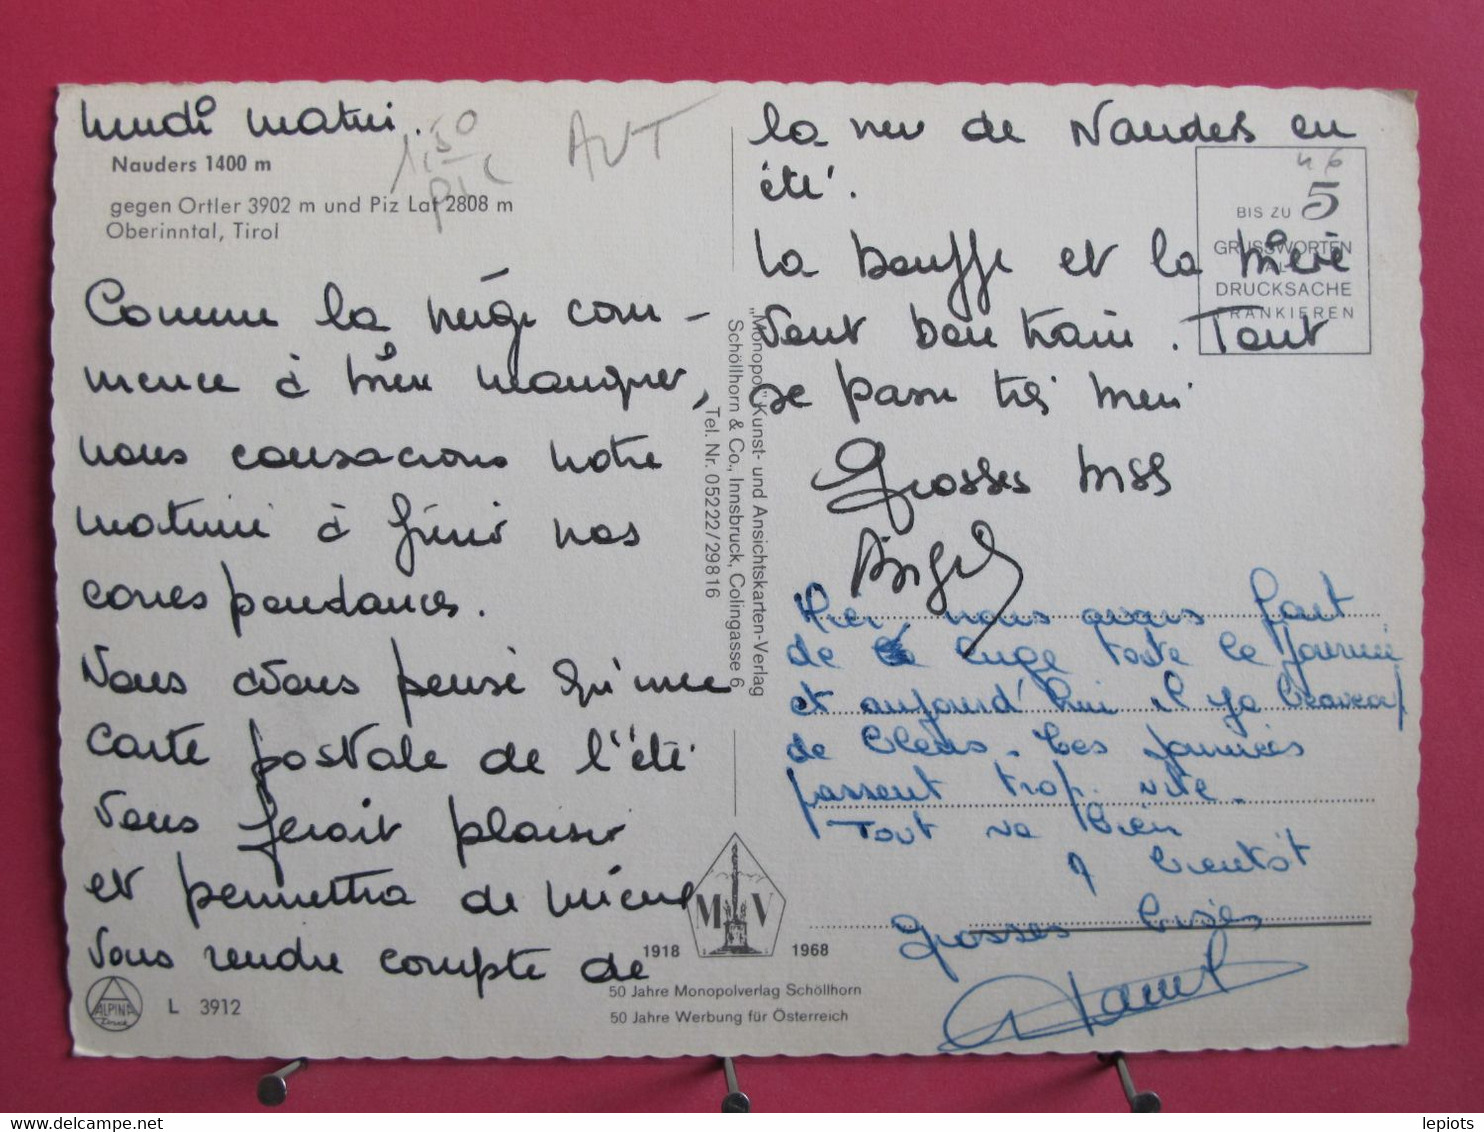 lundi matin.
1,50
pic
AUT
Nauders 1400 m
gegen Ortler 3902 m und Piz Lat 2808 m
Oberinntal, Tirol
Comme la neige com-
mence à bien manquer,
nous consacrons notre
matinée à finir nos
correspondances.
Nous avons pensé qu'une
carte postale de l'été
vous ferait plaisir
et permettra de mieux
vous rendre compte de
la vue de Nauders en
été.
la bouffe et la bière
vont bon train. Tout
se passe très bien
Grosses bises
BIS ZU 5
GRUSSWORTEN
ALS
DRUCKSACHE
FRANKIEREN
46
Hier, nous avons fait
de la luge toute la journée
et aujourd'hui il y a beaucoup
de bleus. Les journées
passent trop vite.
Tout va bien
A bientôt
Grosses bises
"Monopol" Kunst- und Ansichtskarten-Verlag
Schöllhorn & Co., Innsbruck, Colingasse 6
Tel. Nr. 05222/29816
M V
1918 1968
50 Jahre Monopolverlag Schöllhorn
50 Jahre Werbung für Österreich
ALPINA
Druck
L 3912
delcampe.net
lepiots